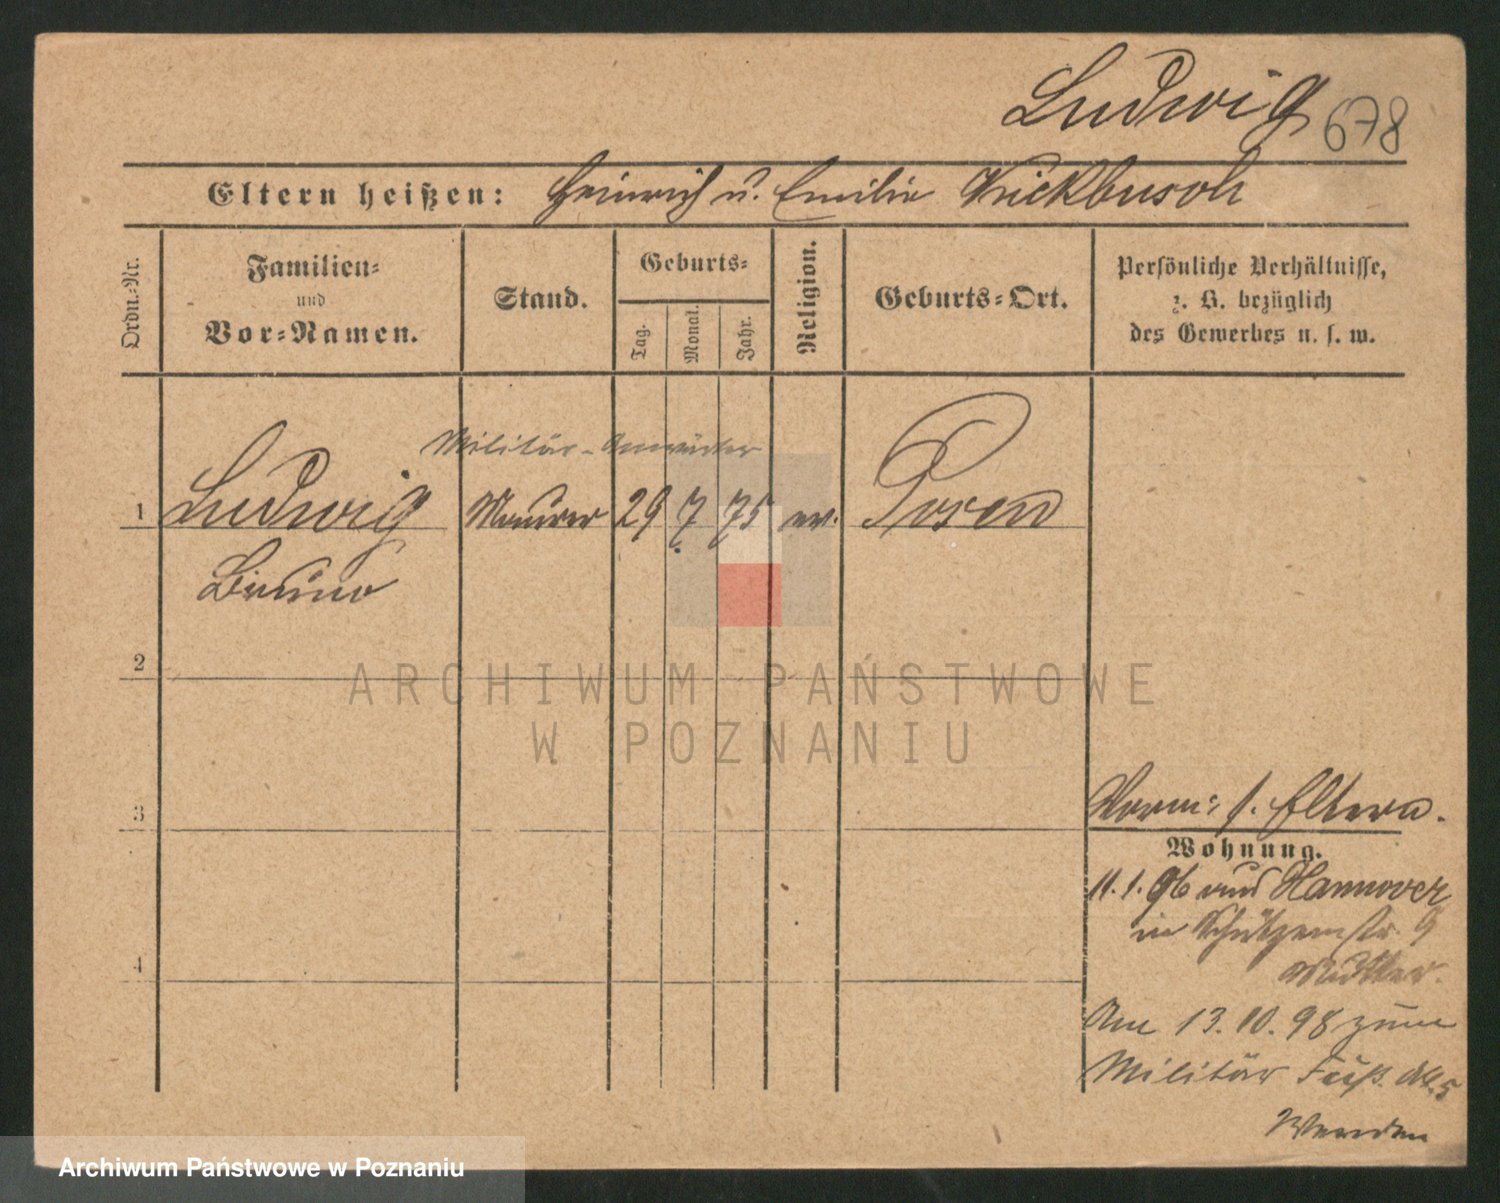 Ludwig 678
Eltern heißen: Heinrich u. Emilie Krickbusch
Ordn.-Nr.
Familien-
und
Vor-Namen.
Stand.
Geburts-
Tag.
Monat.
Jahr.
Religion.
Geburts-Ort.
Persönliche Verhältnisse,
z. B. bezüglich
des Gewerbes u. s. w.
Militär-Anwärter
1 Ludwig Maurer 29 7 75 ev. Posen
Bruno
2
ARCHIWUM PAŃSTWOWE
W POZNANIU
3
Vorm: s. Eltern.
Wohnung.
11.1.96 Hannover
in Schützenstr. 9
4
Am 13.10.98 zum
Militär 5
Archiwum Państwowe w Poznaniu